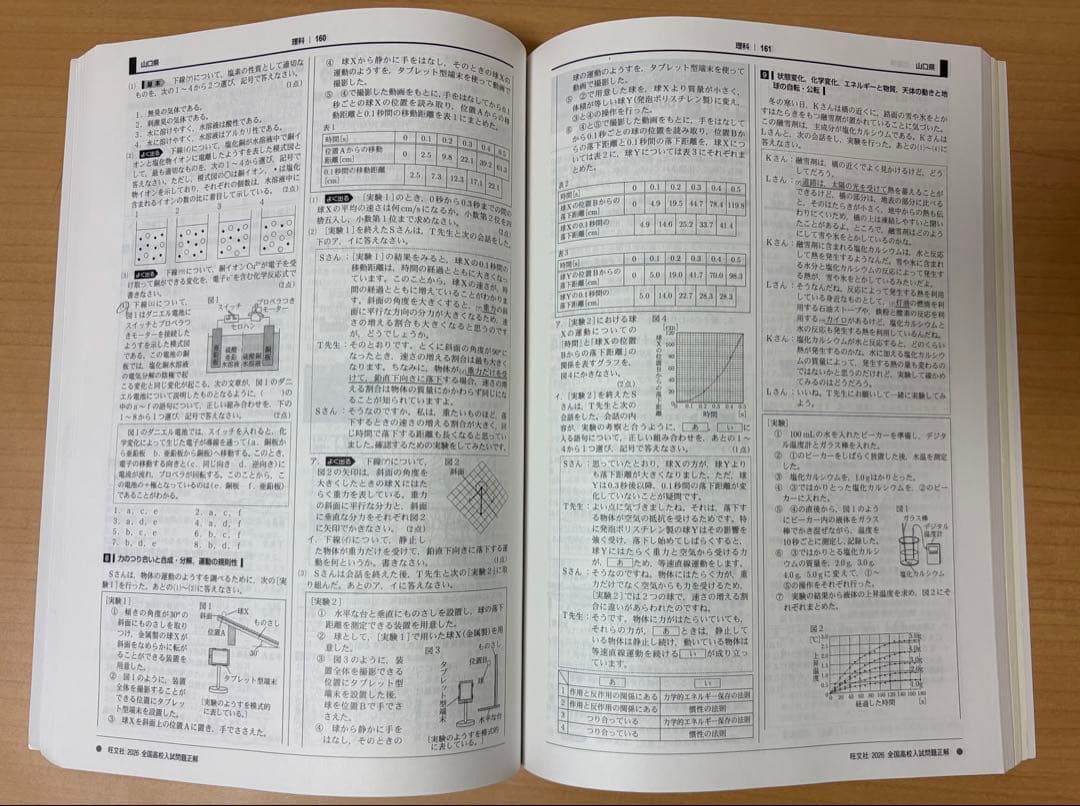 理科 | 160
山口県
(1) 基本 下線(ア)について、塩素の性質として適切な
ものを、次の1~4から2つ選び、記号で答えなさい。
(1点)
1. 無臭の気体である。
2. 刺激臭の気体である。
3. 水に溶けやすく、水溶液は酸性である。
4. 水に溶けやすく、水溶液はアルカリ性である。
(2) よく出る 下線(イ)について、塩化銅が水溶液中で銅イ
オンと塩化物イオンに電離したようすを表した模式図と
して、最も適切なものを、次の1~4から選び、記号で
答えなさい。ただし、模式図の○は銅イオン、・は塩化
物イオンを示しており、それぞれの個数は、水溶液中に
含まれるイオンの数の比に着目して示している。 (2点)
1 2 3 4
(3) よく出る 下線(ウ)について、銅イオンCu²⁺が電子を受
け取って銅ができる変化を、電子e⁻を含む化学反応式で
書きなさい。
(4) 下線(エ)について、
図1はダニエル電池に
スイッチとプロペラつ
きモーターを接続した
ようすを示した模式図
である。この電池の銅
板では、塩化銅水溶液
の電気分解の陰極で起
こる変化と同じ変化が起こる。次の文章が、図1のダニ
エル電池について説明したものとなるように、( )の
中のa~fの語句について、正しい組み合わせを、下の
1~8から1つ選び、記号で答えなさい。 (1点)
図1
スイッチ
プロペラつき
モーター
セロハン
亜鉛板
硫酸亜鉛水溶液
硫酸銅水溶液
銅板
図1のダニエル電池では、スイッチを入れると、化
学変化によって生じた電子が導線を通って(a. 銅板か
ら亜鉛板 b. 亜鉛板から銅板)へ移動する。このとき、
電子の移動する向きと(c. 同じ向き d. 逆向き)に
電流が流れ、プロペラが回転する。このことから、こ
の電池の+極となっているのは(e. 銅板 f. 亜鉛板)
であることがわかる。
1. a, c, e 2. a, c, f
3. a, d, e 4. a, d, f
5. b, c, e 6. b, c, f
7. b, d, e 8. b, d, f
8 力のつり合いと合成・分解、運動の規則性
Sさんは、物体の運動のようすを調べるために、次の[実
験1]を行った。あとの(1)~(3)に答えなさい。
[実験1]
① 傾きの角度が30°の
斜面にものさしを取り
つけ、金属製の球Xが
斜面をなめらかに転が
ることができる装置を
用意した。
② 図1のように、装置
全体を撮影することが
できる位置にタブレッ
ト型端末を設置した。
③ 球Xを斜面上の位置Aに置き、手でささえた。
図1
斜面
球X
ものさし
位置A
30°
タブレット型端末
[実験のようすを模式的
に表している。]
④ 球Xから静かに手をはなし、そのときの球Xの
運動のようすを、タブレット型端末を使って動画
で撮影した。
⑤ ④で撮影した動画をもとに、手をはなしてから0.1
秒ごとの球Xの位置を読み取り、位置Aからの移
動距離と0.1秒間の移動距離を表1にまとめた。
表1
時間[s] 0 0.1 0.2 0.3 0.4 0.5
位置Aからの移動距離[cm] 0 2.5 9.8 22.1 39.2 61.3
0.1秒間の移動距離[cm] 2.5 7.3 12.3 17.1 22.1
(1) よく出る [実験1]のとき、0秒から0.3秒までの間の
球Xの平均の速さは何cm/sになるか。小数第2位を四
捨五入し、小数第1位まで求めなさい。
(2) [実験1]を終えたSさんは、T先生と次の会話をした。
下のア、イに答えなさい。
Sさん:[実験1]の結果をみると、球Xの0.1秒間の
移動距離は、時間の経過とともに大きくなって
います。このことから、球Xの速さが、時
間の経過とともに増えていることがわかりま
す。斜面の角度を大きくすると、(ア)重力の斜
面に平行な方向の分力が大きくなるため、速
さの増える割合も大きくなると思うのです
が、どうでしょうか。
T先生:そのとおりです。とくに斜面の角度が90°に
なったとき、速さの増える割合は最も大きくな
ります。ちなみに、物体が(イ)重力だけを受
けて、鉛直下向きに落下する場合、速さの増
える割合は物体の質量にかかわらず同じにな
ることが知られていますよ。
Sさん:そうなのですか。私は、重たいものほど、落
下するときの速さの増える割合が大きく、同
じ時間で落下する距離も長くなると思ってい
ました。確認するための実験をしてみたいです。
ア. よく出る 下線(ア)について、
図2の矢印は、斜面の角度を
大きくしたときの球Xにはた
らく重力を表している。重力
の斜面に平行な分力と、斜面
に垂直な分力をそれぞれ図2
に矢印でかきなさい。 (2点)
図2
斜面
イ. 下線(イ)について、静止し
た物体が重力だけを受けて、鉛直下向きに落下する運
動を何というか。書きなさい。 (1点)
(3) Sさんは会話を終えた後、T先生と次の[実験2]に取
り組んだ。あとのア、イに答えなさい。
[実験2]
① 水平な台と垂直にものさしを設置し、球の落下
距離を測定できる装置を用意した。
② 球として、[実験1]で用いた球X(金属製)を用
意した。
③ 図3のように、装
置全体を撮影できる
位置にタブレット型
端末を設置した後、
球を位置Bで手でさ
さえた。
④ 球から静かに手を
はなし、そのときの
図3
ものさし
位置B
球
タブレット型端末
水平な台
[実験のようすを模式的
に表している。]
旺文社 2026 全国高校入試問題正解
理科 | 161
山口県
球の運動のようすを、タブレット型端末を使って動
画で撮影した。
⑤ ②で用意した球を、球Xより質量が小さく、
体積が等しい球Y(発泡ポリスチレン製)に変え、
③と④の操作を行った。
⑥ ④と⑤で撮影した動画をもとに、手をはなして
から0.1秒ごとの球の位置を読み取り、位置Bか
らの落下距離と0.1秒間の落下距離を、球Xにつ
いては表2に、球Yについては表3にそれぞれま
とめた。
表2
時間[s] 0 0.1 0.2 0.3 0.4 0.5
球Xの位置Bからの落下距離[cm] 0 4.9 19.5 44.7 78.4 119.8
球Xの0.1秒間の落下距離[cm] 4.9 14.6 25.2 33.7 41.4
表3
時間[s] 0 0.1 0.2 0.3 0.4 0.5
球Yの位置Bからの落下距離[cm] 0 5.0 19.0 41.7 70.0 98.3
球Yの0.1秒間の落下距離[cm] 5.0 14.0 22.7 28.3 28.3
ア. [実験2]における球
Xの運動についての
「時間」と「球Xの位置
Bからの落下距離」の
関係を表すグラフを、
図4にかきなさい。
(2点)
図4
球Xの位置Bからの落下距離
[cm]
100
50
0
0 0.1 0.2 0.3 0.4 0.5
時間 [s]
イ. [実験2]を終えたS
さんは、T先生と次の
会話をした。会話の内
容が、実験の考察と合うように、 あ 、 い
に入る語句について、正しい組み合わせを、あとの1~
4から1つ選び、記号で答えなさい。 (1点)
Sさん:思っていたとおり、球Xの方が、球Yより
も落下距離が大きくなりました。ただ、球
Yは0.3秒後以降、0.1秒間の落下距離が変
化していないことが疑問です。
T先生:よい点に気づきましたね。それは、落下する
物体が空気の抵抗を受けるためです。特に
発泡ポリスチレン製の球Yはその影響を
強く受け、落下し始めてしばらくすると、
球Yにはたらく重力と空気から受ける力
が、 あ ため、等速直線運動をします。
Sさん:そうなのですね。物体にはたらく力が、重
力だけでなく空気からも力を受けるため、[実
験2]では2つの球で、速さの増える割合に
違いがあらわれたのですね。
T先生:そうです。物体に力がはたらいていても、
それらの力が、 あ ときは、静止して
いる物体は静止し続け、動いている物体は
等速直線運動を続ける い が成り立っ
ています。
あ い
1 作用と反作用の関係にある 力学的エネルギー保存の法則
2 作用と反作用の関係にある 慣性の法則
3 つり合っている 力学的エネルギー保存の法則
4 つり合っている 慣性の法則
9 状態変化、化学変化、エネルギーと物質、天体の動きと地
球の自転・公転
冬の寒い日、Kさんは橋の近くに、路面の雪や氷をとか
すはたらきをもつ融雪剤が置かれていることに気づいた。
この融雪剤は、主成分が塩化カルシウムである。Kさんは
Lさんと、次の会話をし、実験を行った。あとの(1)~(4)
に答えなさい。
Kさん:融雪剤は、橋の近くでよく見かけるけど、どう
してだろう。
Lさん:(ア)道路は、太陽の光を受けて熱を蓄えることが
できるけど、橋の部分は、地表の部分に比べる
と、そのはたらきが小さく、地中からの熱も伝
わりにくいため、橋の上は凍結しやすいと聞い
たことがあるよ。ところで、融雪剤はどのよう
にして雪や氷をとかしているのかな。
Kさん:融雪剤に含まれる塩化カルシウムは、水と反応
して熱を発生するようなんだ。雪や氷に含まれ
る水分と塩化カルシウムの反応によって発生す
る熱が、雪や氷をとかしているみたいだよ。
Lさん:そうなんだね。反応によって発生する熱を利用
している身近なものとして、(イ)灯油の燃焼を利
用する石油ストーブや、鉄粉と酸素の反応を利用
する(ウ)カイロがあるけど、塩化カルシウムと
水の反応も発生する熱を利用していたんだね。
Kさん:塩化カルシウムが水と反応すると、どのくらい
熱が発生するのかな。水に加える塩化カルシウ
ムの質量によって、発生する熱の量も変わるの
ではないかと思うのだけれど、実験して確かめ
てみるのはどうだろう。
Lさん:いいね。T先生にお願いして一緒に実験してみ
よう。
[実験]
① 100mLの水を入れたビーカーを準備し、デジタ
ル温度計とガラス棒を入れた。
② ①のビーカーをしばらく放置した後、水温を測定
した。
③ 塩化カルシウムを、1.0gはかりとった。
④ ③ではかりとった塩化カルシウムを、②のビー
カーに入れた。
⑤ ④の直後から、図1のよう
にビーカー内の液体をガラス
棒でかき混ぜながら、温度を
10秒ごとに測定し、記録した。
⑥ ③ではかりとる塩化カルシ
ウムの質量を、2.0g、3.0g、
4.0g、5.0gに変えて、①~
⑤の操作をそれぞれ行った。
⑦ 実験の結果から液体の上昇温度を求め、図2にそ
れぞれまとめた。
図1
ガラス棒
デジタル温度計
塩化カルシウム
図2
[℃]
上昇温度
0 20 40 60 80 100 120 140 160 180
経過した時間 [s]
旺文社 2026 全国高校入試問題正解